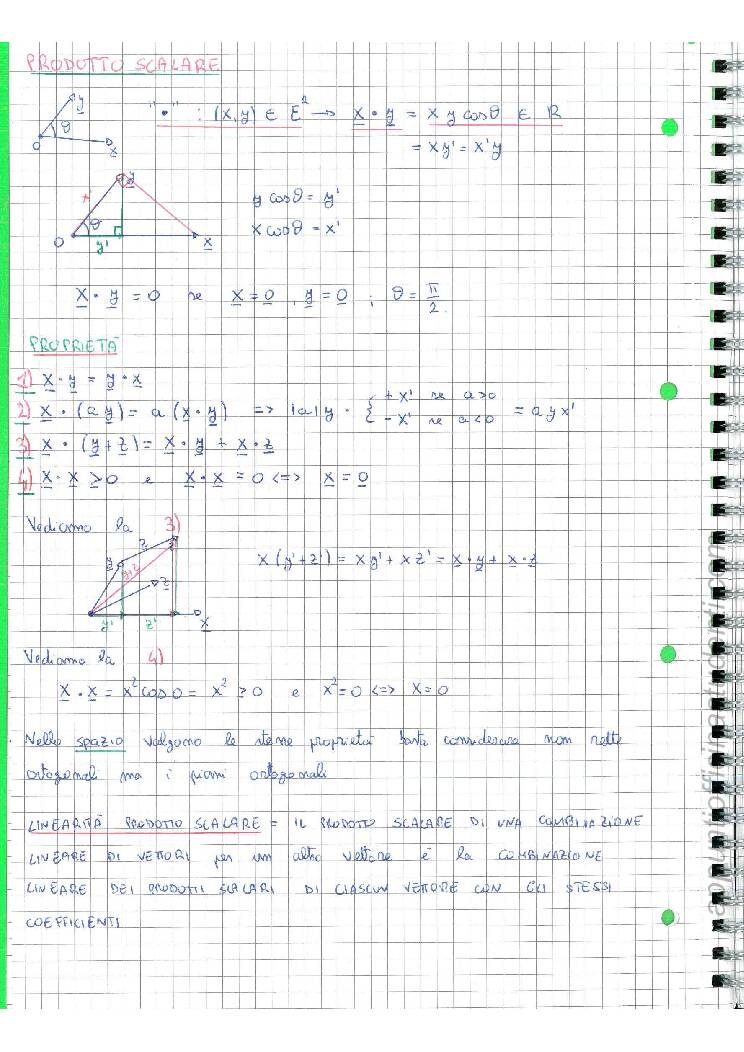 PRODOTTO SCALARE
y
θ
O
x
"•" : (x,y) ∈ E² → x • y = x y cosθ ∈ R
= xy' = x'y
y
x
θ
O
y'
x
y cosθ = y'
x cosθ = x'
x • y = 0 se x = 0 , y = 0 ; θ = π/2
PROPRIETÀ
1) x • y = y • x
2) x • (a y) = a (x • y) => |a| y • { + x' se a>0 - x' se a<0 = a y x'
3) x • (y + z) = x • y + x • z
4) x • x ≥ 0 e x • x = 0 <=> x = 0
Vediamo la 3)
z
y
y+z
z
y'
z'
x
x (y' + z') = xy' + xz' = x • y + x • z
Vediamo la 4)
x • x = x² cos 0 = x² ≥ 0 e x² = 0 <=> x = 0
Nello spazio valgono le stesse proprietà basta considerare non rette
ortogonali ma i piani ortogonali
LINEARITÀ PRODOTTO SCALARE = IL PRODOTTO SCALARE DI UNA COMBINAZIONE
LINEARE DI VETTORI per un altro vettore è la COMBINAZIONE
LINEARE DEI PRODOTTI SCALARI DI CIASCUN VETTORE CON GLI STESSI
COEFFICIENTI